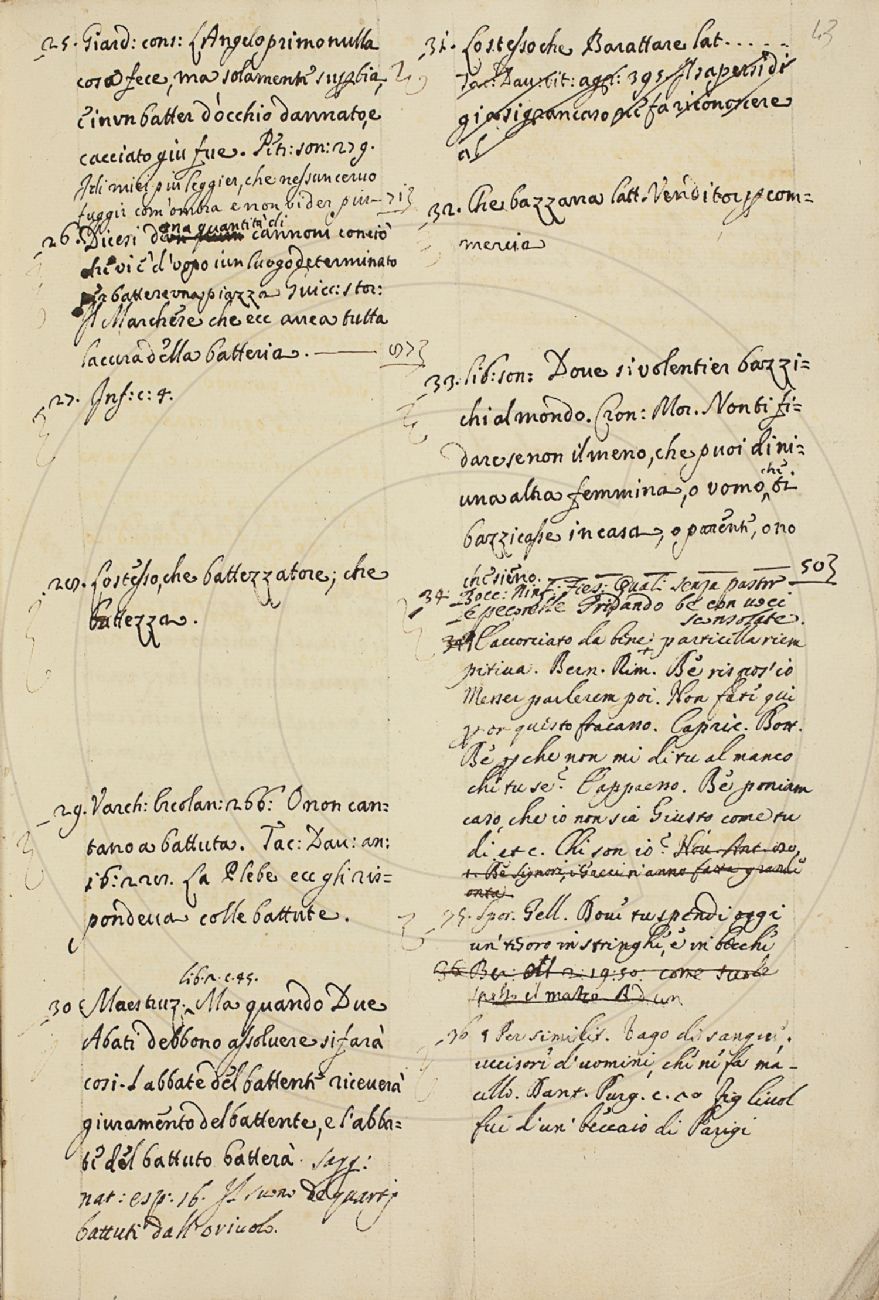 43
25. Giard: cons: L'Angelo primo nulla
cosa fece, ma solamente superbia,
e in un batter d'occhio dannato, e
cacciato giu fue. Petr: son: 279.
I dì miei piu leggier, che nessun cervo
fuggir com'ombra e non vider piu — 71}
26. Dicesi d'una quantità di cannoni concio
che vi è d'uopo in un luogo determinato
per battere una piazza Guicc: stor:
Il Marchese che ecc avea tutta
la cura della batteria. — 97}
27. Inf: c: 4.
28. Lo stesso, che battezzatore; che
battezza.
29. Varch: Ercolan: 266: O non can=
tano a battuta. Tac: Dav: an:
16: 228. La Plebe ecc gli ris=
pondeva colle battute.
lib. 2. c. 45.
30 Maestruz: Ma quando Due
Abati debbono assoluere si farà
cosi. L'abbate del battente riceuerà
giuramento del battente, e l'abba=
te del battuto batterà. Sagg:
nat: esp: 16. Il suono de quarti
battuti dall'oriuolo.
31. Lo stesso che Barattare lat. . . . .
Tac: Dau: uit: agr: 395
32. Che bazzarra latt. Venditor p com=
mercia
33. lib: son: Doue si volentier bazzi=
chi al mondo. Cron: Mor. Non ti fi=
dare se non il meno, che puoi di ni=
una altra femmina, o vomo, che ti
bazzicasse in casa, o parenti, o no
che sieno. — 50}
34. Bocc: Ninf: Fies: Quali senza pastor
le pecorelle Gridando bè con uoci
sconsolate.
L'accorciato da bene particella riem
pitiua. Bern. Rim. Bè rispos'io
Messer parlerem poi. Non fate qui
per questo fracasso. Capric. Bott.
Bè p che non mi di tu al manco
chi tu se? L'appresso. Bè poniam
caso, che io non sia Giusto come tu
di etc. Chi son io?
Bè signori, i Greci n'anno fatta grande
onta
35. Spor. Gell. Doue tu spendi oggi
un tesoro in stringhe, e in becchi
36 Ber. Orl 2. 19. 50. come
36 ¶ Per similit. Vago di sangue.
uccisore d'uomini, chi ne fa ma-
cello. Dant. Purg. c. 20 Figliuol
fui d'un beccaio di Parigi